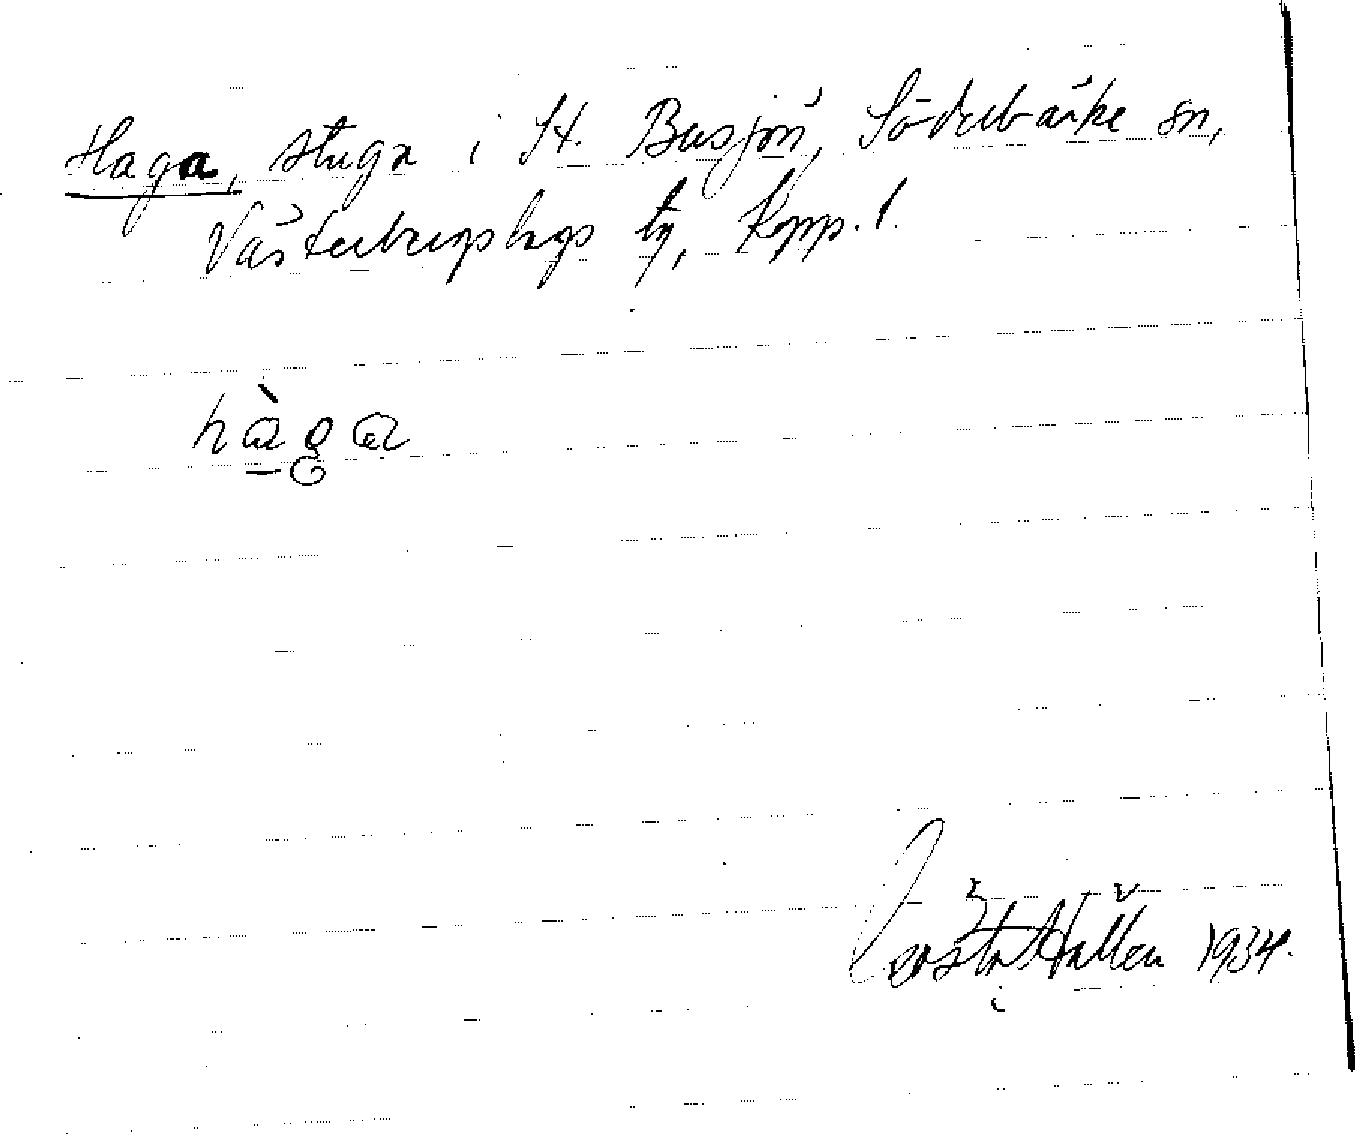 Haga, stuga i St. Busjön, Söderbärke sn,
Västerbergslags tg, Kopp. l.
hàga
Gösta Hallén 1934.